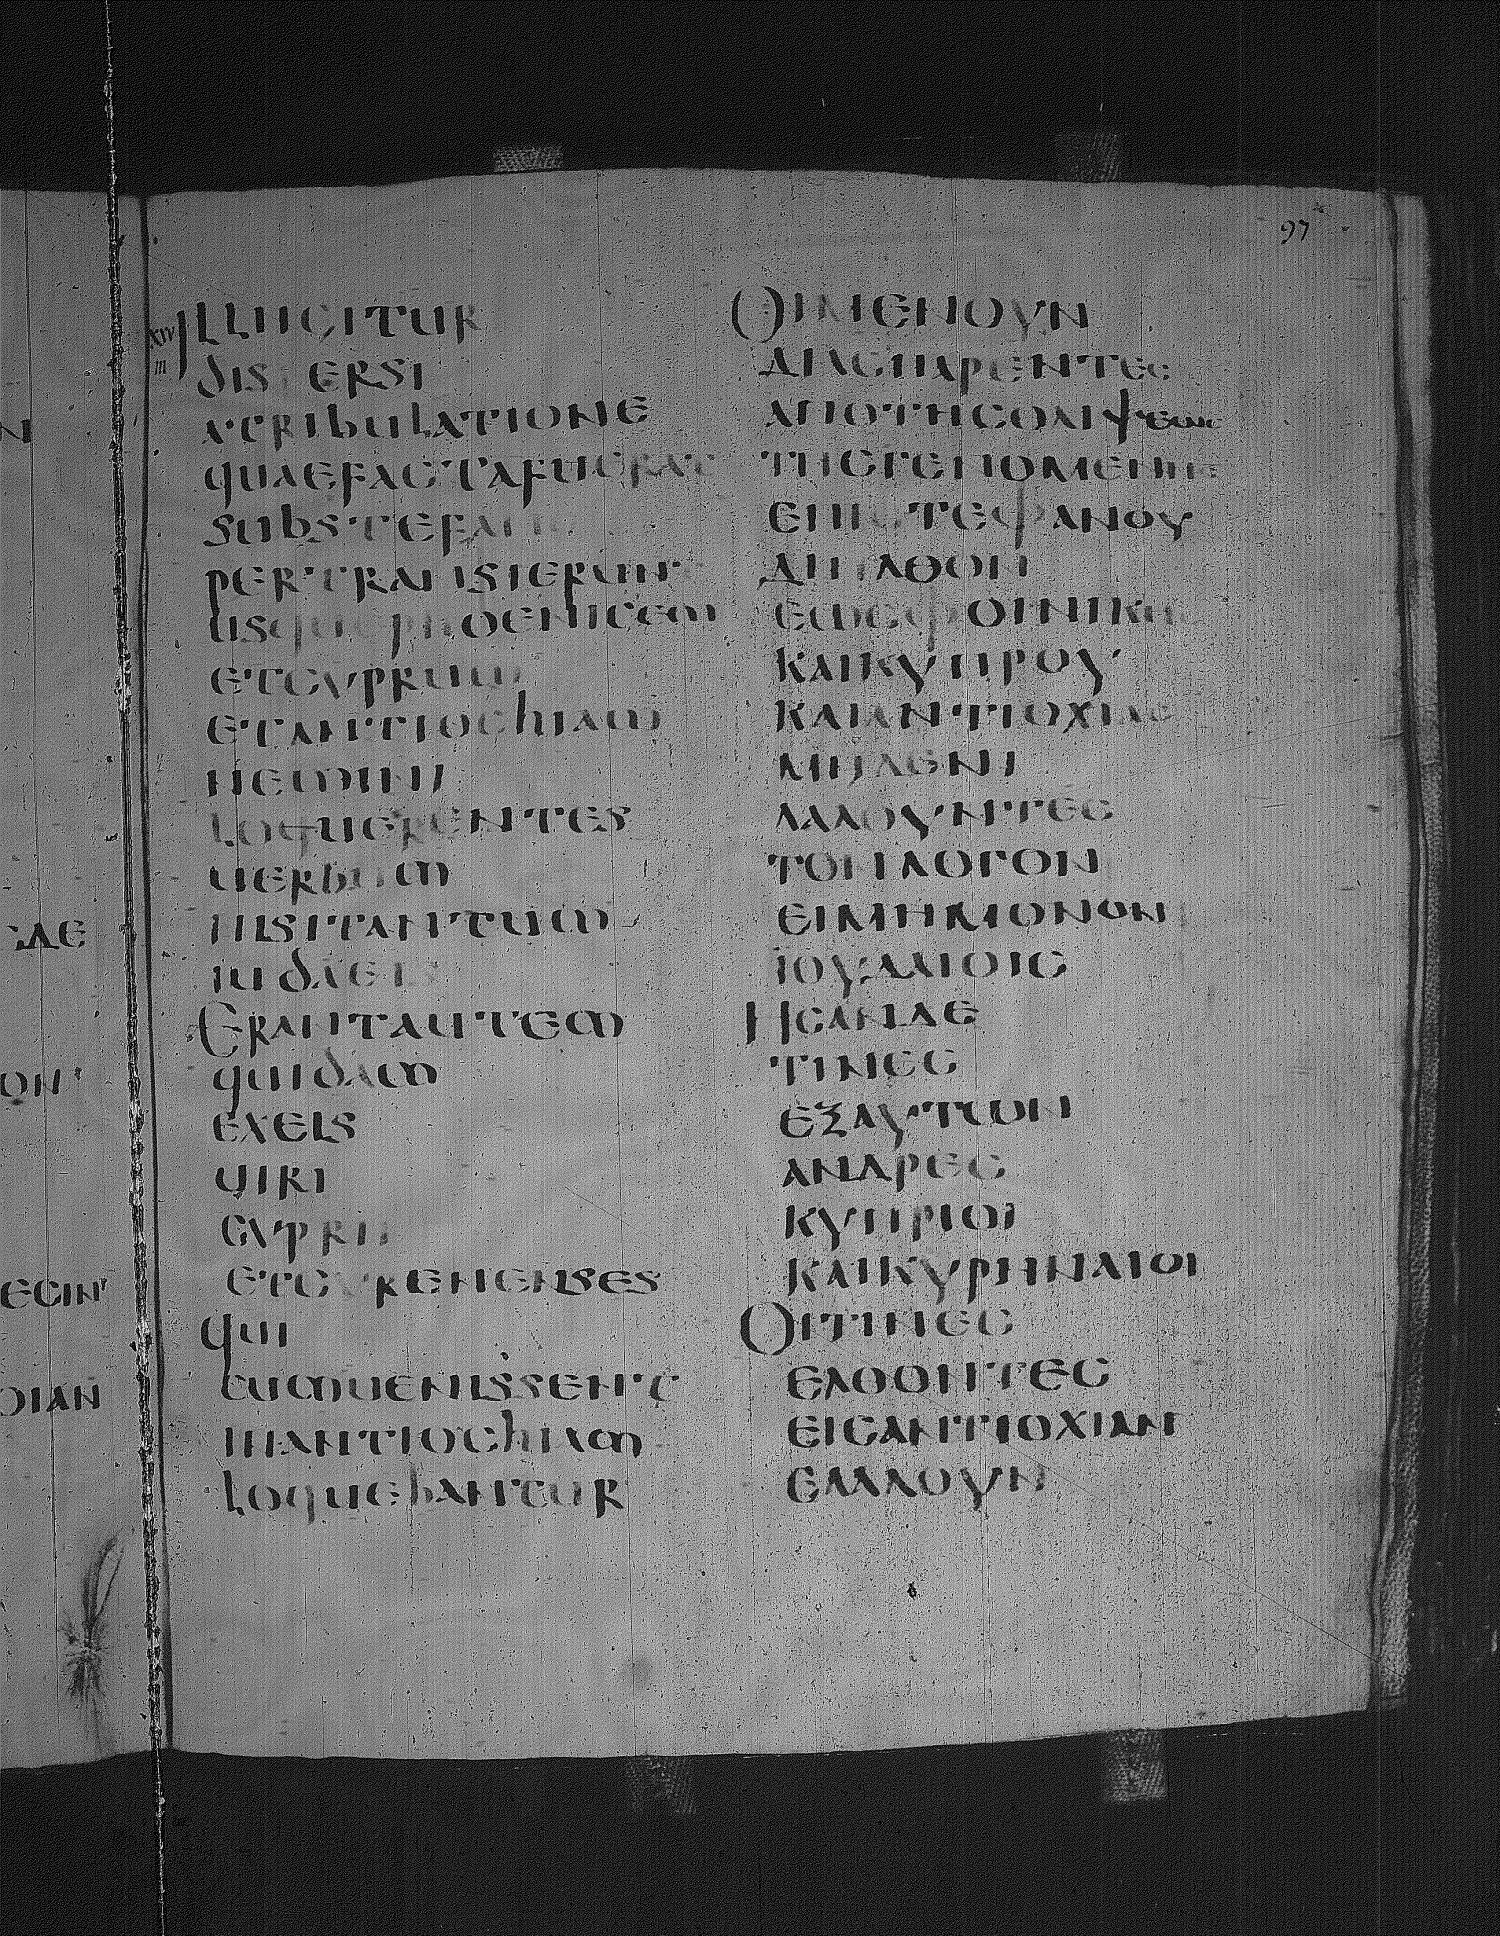 97
ILLIIGITUR
DISPERSI
ATRIBULATIONE
QUAEFACTAFUERAT
SUBSTEFANO
PERTRANSIERUNT
USQUEPHOENICEM
ETCYPRUM
ETANTIOCHIAM
NEMINI
LOQUERENTES
UERBUM
NISITANTUM
IUDAEIS
ERANTAUTEM
QUIDAM
EXEIS
UIRI
CYPRII
ETCYRENENSES
QUI
CUMUENISSENT
INANTIOCHIAM
LOQUEBANTUR
ΟΙΜΕΝΟΥΝ
ΔΙΑСΠΑΡΕΝΤΕС
ΑΠΟΤΗСΘΛΙΨΕωС
ΤΗСΓΕΝΟΜΕΝΗС
ΕΠΙСΤΕΦΑΝΟΥ
ΔΙΗΛΘΟΝ
ΕωСΦΟΙΝΙΚΗС
ΚΑΙΚΥΠΡΟΥ
ΚΑΙΑΝΤΙΟΧΙΑС
ΜΗΔΕΝΙ
ΛΑΛΟΥΝΤΕС
ΤΟΝΛΟΓΟΝ
ΕΙΜΗΜΟΝΟΝ
ΙΟΥΔΑΙΟΙС
ΗСΑΝΔΕ
ΤΙΝΕС
ΕΞΑΥΤωΝ
ΑΝΔΡΕС
ΚΥΠΡΙΟΙ
ΚΑΙΚΥΡΗΝΑΙΟΙ
ΟΙΤΙΝΕС
ΕΛΘΟΝΤΕС
ΕΙСΑΝΤΙΟΧΙΑΝ
ΕΛΑΛΟΥΝ